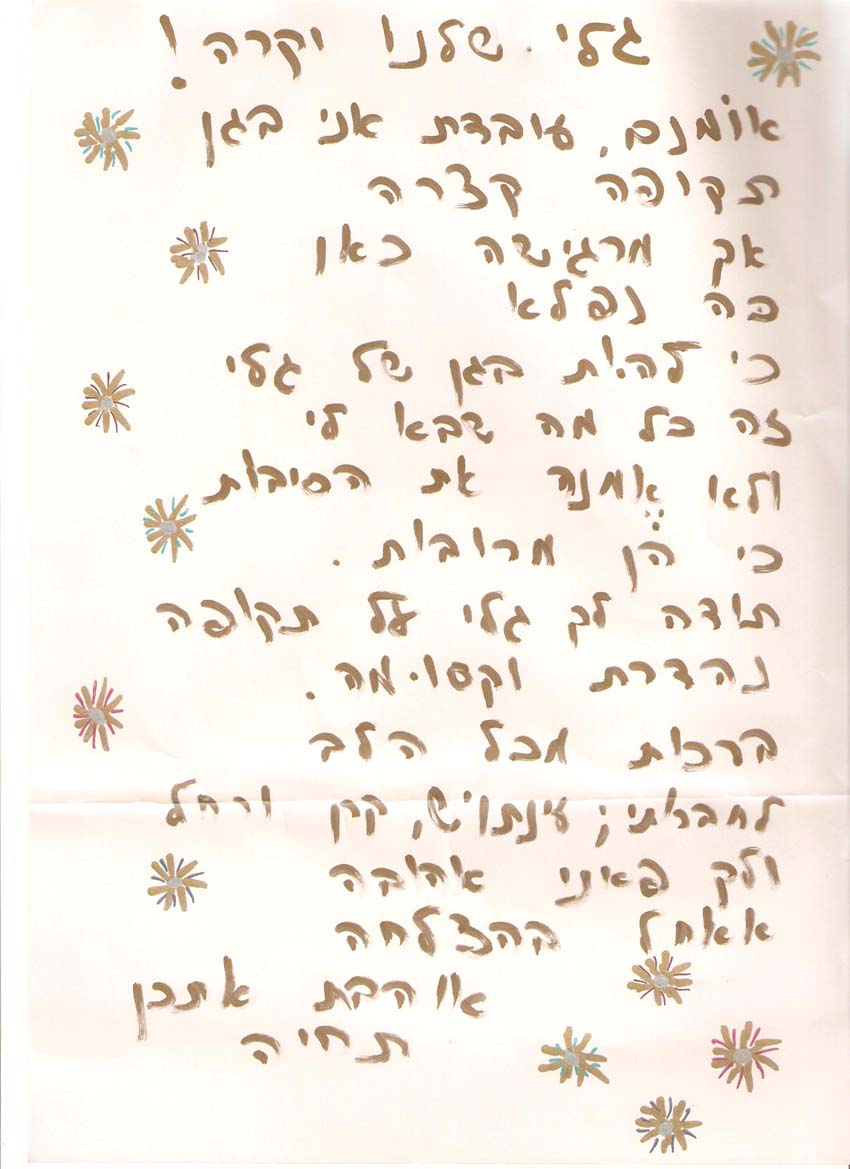 גלי שלנו יקרה!
אומנם, עובדת אני בגן
תקופה קצרה
אך מרגישה כאן
כה נפלא
כי להיות בגן של גלי
זה כל מה שבא לי
ולא אֱמנה את הסיבות
כי הֵן מרובות.
תודה לך גלי על תקופה
נהדרת וקסומה.
ברכות מכל הלב
לחברותי; עינתוש, קרן ורחל
ולך פאיני אהובה
אאחל בהצלחה
אוהבת אתכן
תחיה